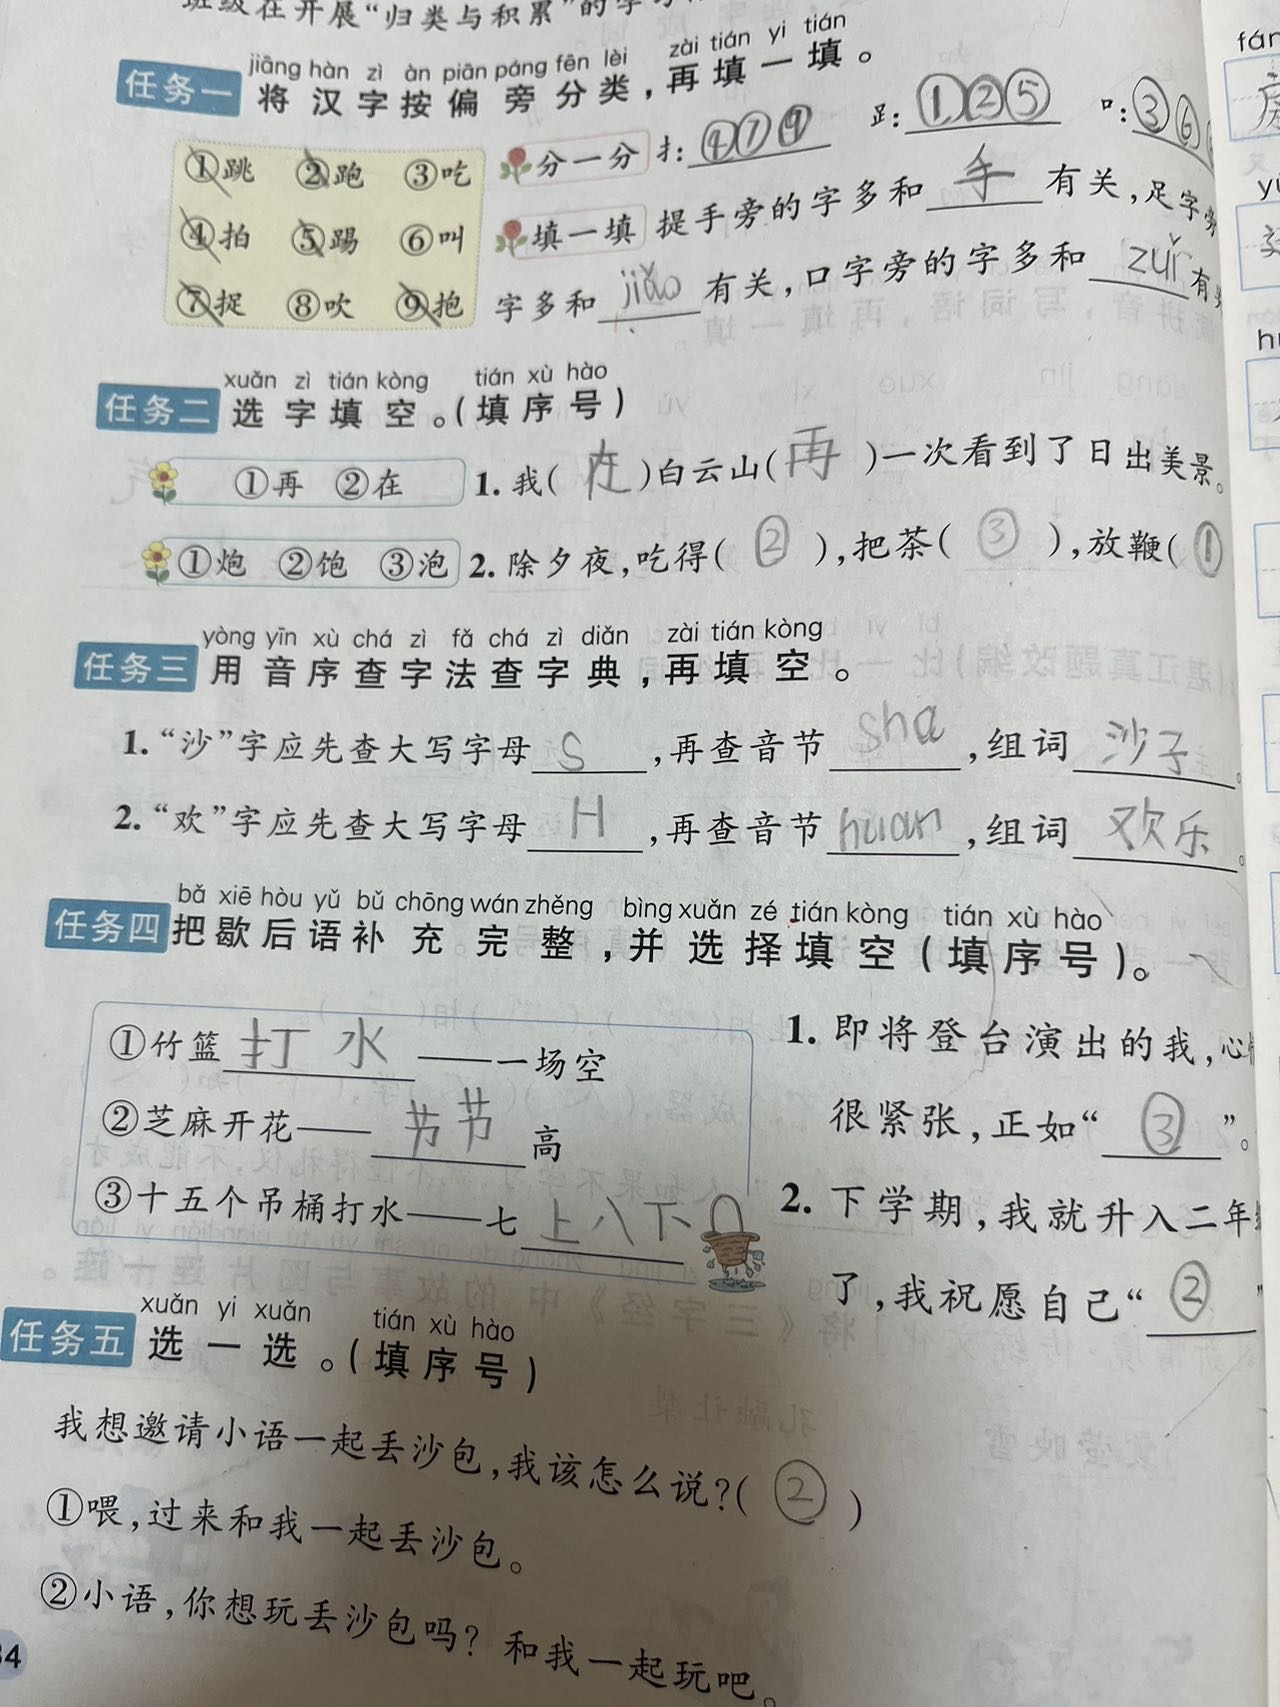 班级在开展“归类与积累”的学习
jiāng hàn zì àn piān páng fēn lèi zài tián yi tián
任务一 将汉字按偏旁分类，再填一填。
①跳 ②跑 ③吃
④拍 ⑤踢 ⑥叫
⑦捉 ⑧吹 ⑨抱
分一分 扌：④⑦⑨ 𧾷：①②⑤ 口：③⑥
填一填 提手旁的字多和 手 有关，足字旁
字多和 jiǎo 有关，口字旁的字多和 zuǐ 有关
xuǎn zì tián kòng tián xù hào
任务二 选字填空。（填序号）
①再 ②在 1. 我（ 在 ）白云山（ 再 ）一次看到了日出美景。
①炮 ②饱 ③泡 2. 除夕夜，吃得（ ② ），把茶（ ③ ），放鞭（ ①
yòng yīn xù chá zì fǎ chá zì diǎn zài tián kòng
任务三 用音序查字法查字典，再填空。
1. “沙”字应先查大写字母 S ，再查音节 sha ，组词 沙子 。
2. “欢”字应先查大写字母 H ，再查音节 huan ，组词 欢乐 。
bǎ xiē hòu yǔ bǔ chōng wán zhěng bìng xuǎn zé tián kòng tián xù hào
任务四 把歇后语补充完整，并选择填空（填序号）。
①竹篮 打水 ——一场空
②芝麻开花—— 节节 高
③十五个吊桶打水——七 上八下
1. 即将登台演出的我，心情
很紧张，正如“ ③ ”。
2. 下学期，我就升入二年级
了，我祝愿自己“ ② ”
xuǎn yi xuǎn tián xù hào
任务五 选一选。（填序号）
我想邀请小语一起丢沙包，我该怎么说？（ ② ）
①喂，过来和我一起丢沙包。
②小语，你想玩丢沙包吗？和我一起玩吧。
34